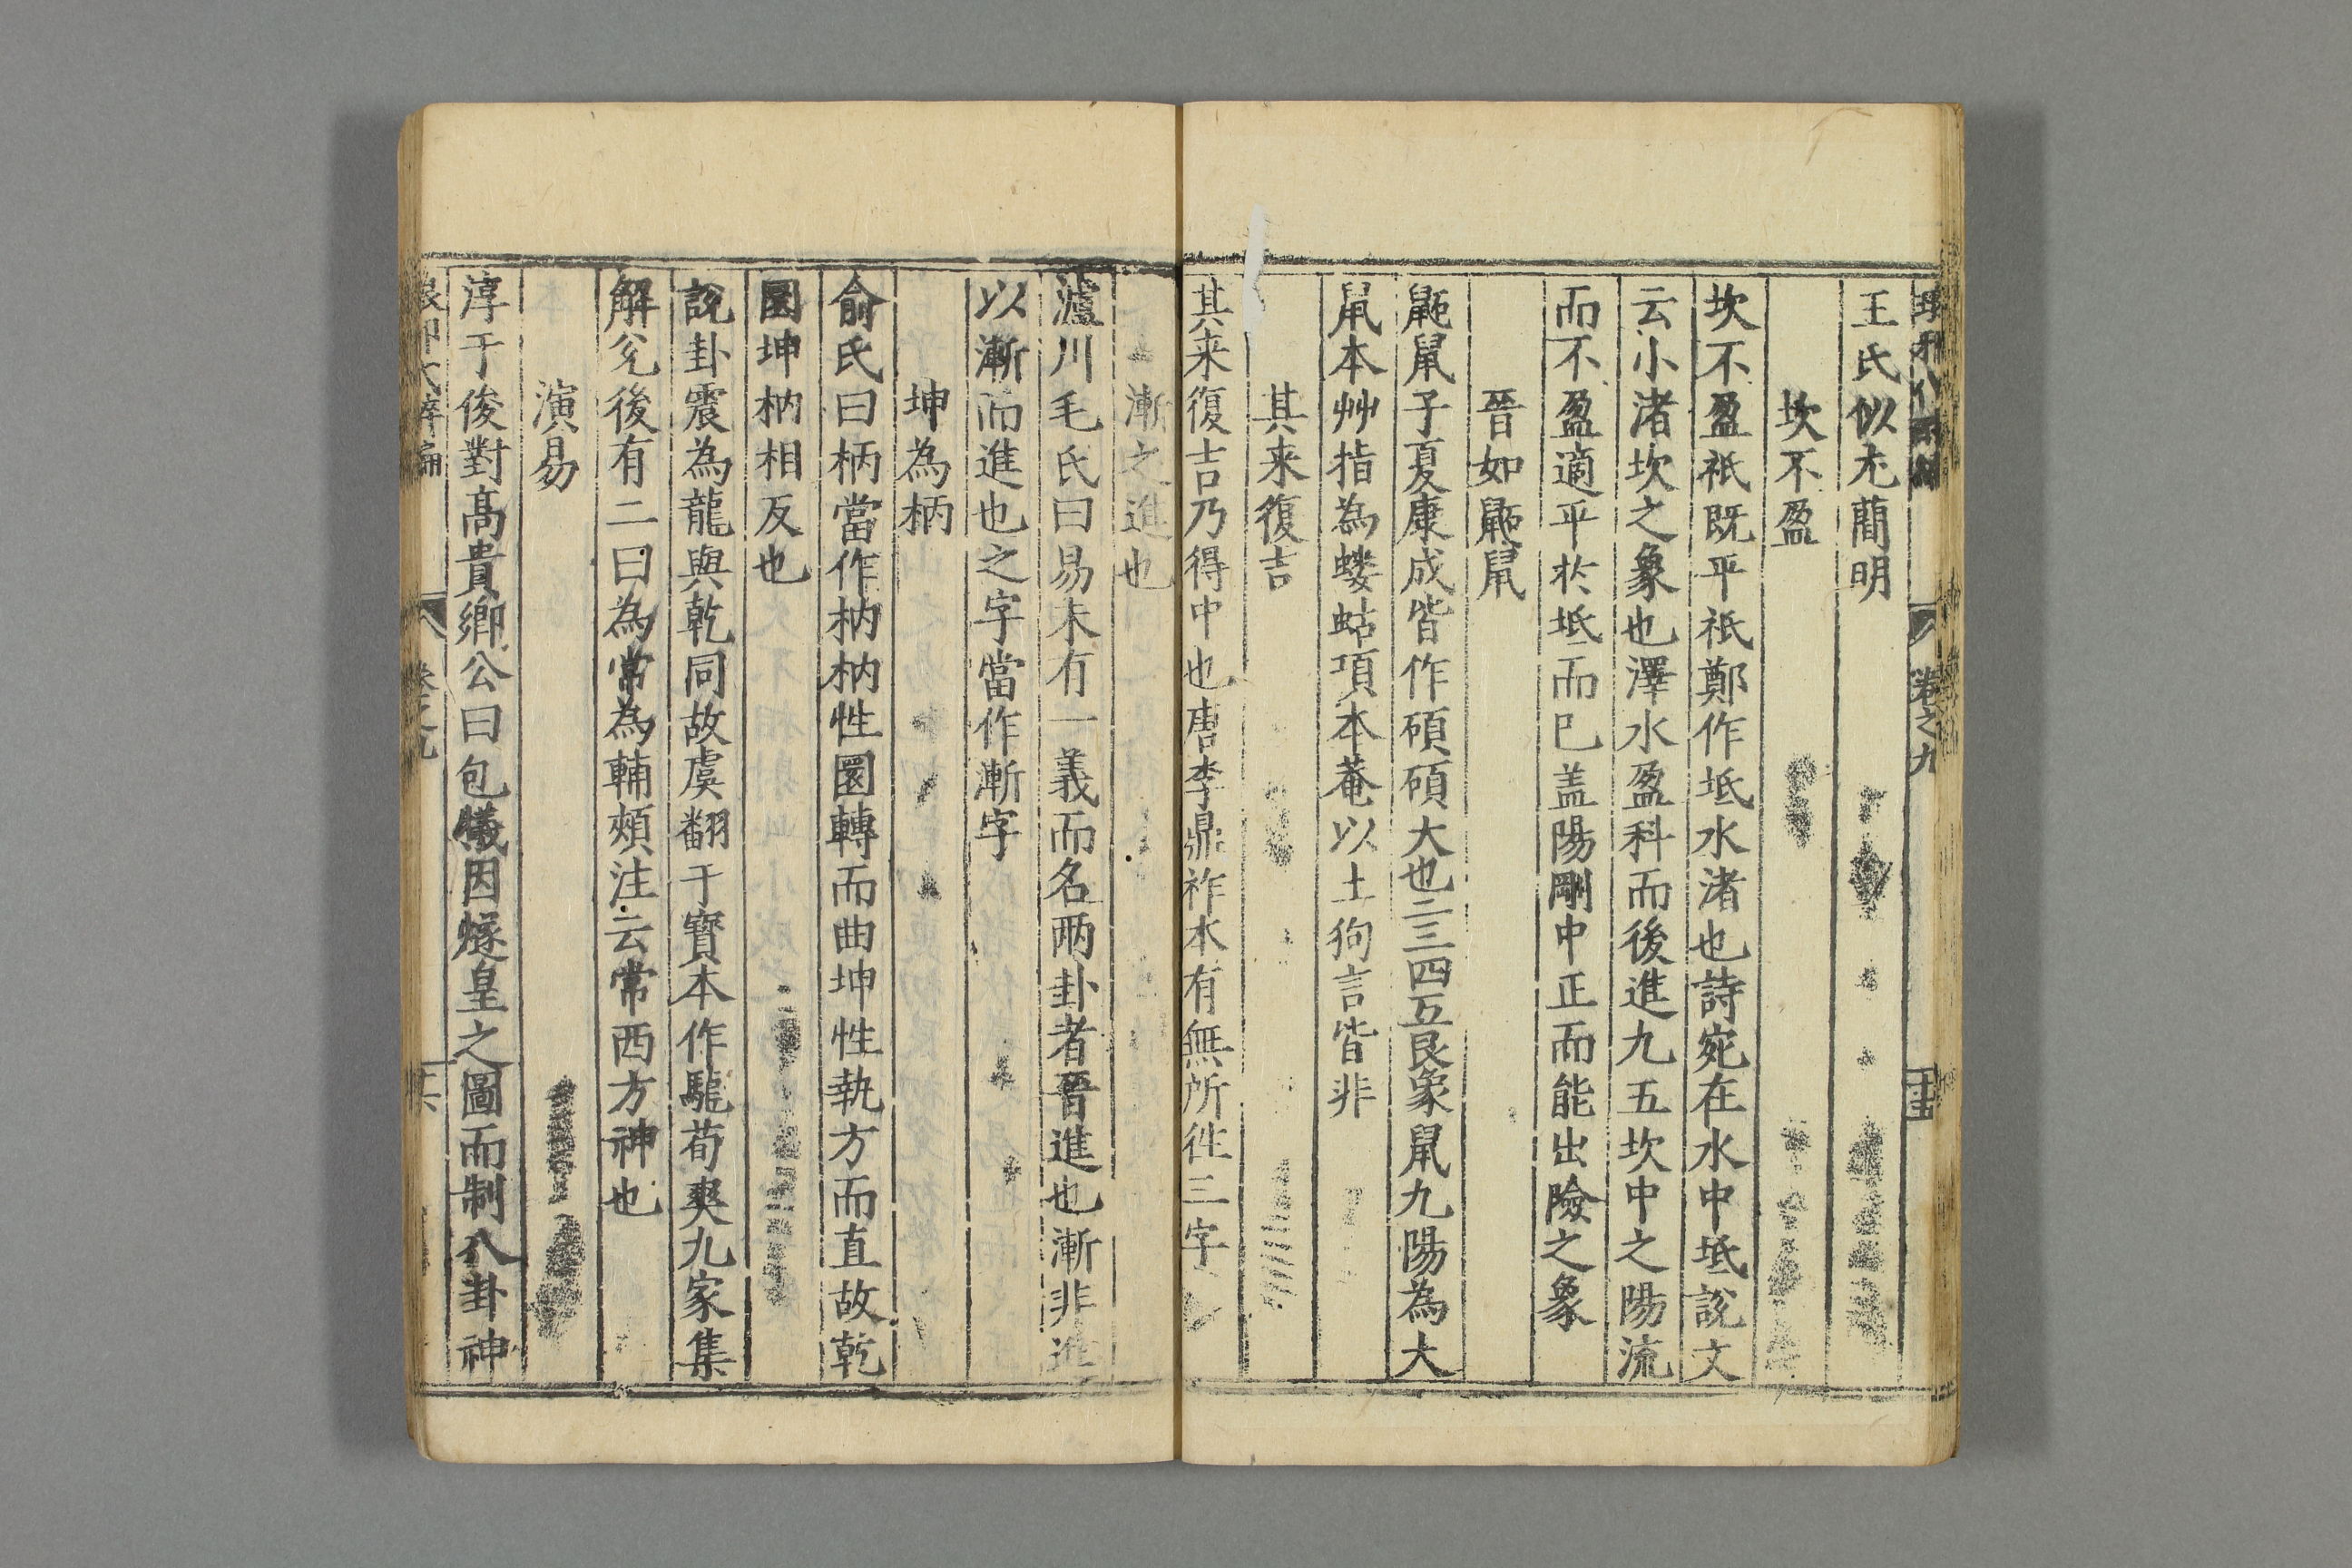 卷之九
王氏似尤蕳明
坎不盈
坎不盈祇既平祇鄭作坻水渚也詩宛在水中坻說文
云小渚坎之象也澤水盈科而後進九五坎中之陽流
而不盈適平於坻而已盖陽剛中正而能出險之象
晉如鼫鼠
鼫鼠子夏康成皆作碩碩大也二三四互艮象鼠九陽為大
鼠本艸指為螻蛄項本菴以土狗言皆非
其来復吉
其来復吉乃得中也唐李鼎祚本有無所徃三字
漸之進也
瀘川毛氏曰易未有一義而名兩卦者晉進也漸非進
以漸而進也之字當作漸字
坤為柄
俞氏曰柄當作枘枘性圜轉而曲坤性執方而直故乾
圜坤枘相反也
說卦震為龍與乾同故虞翻于寳本作駹荀爽九家集
解兌後有二曰為常為輔頰注云常西方神也
演易
淳于俊對髙貴鄉公曰包犧因燧皇之圖而制八卦神
卷之九